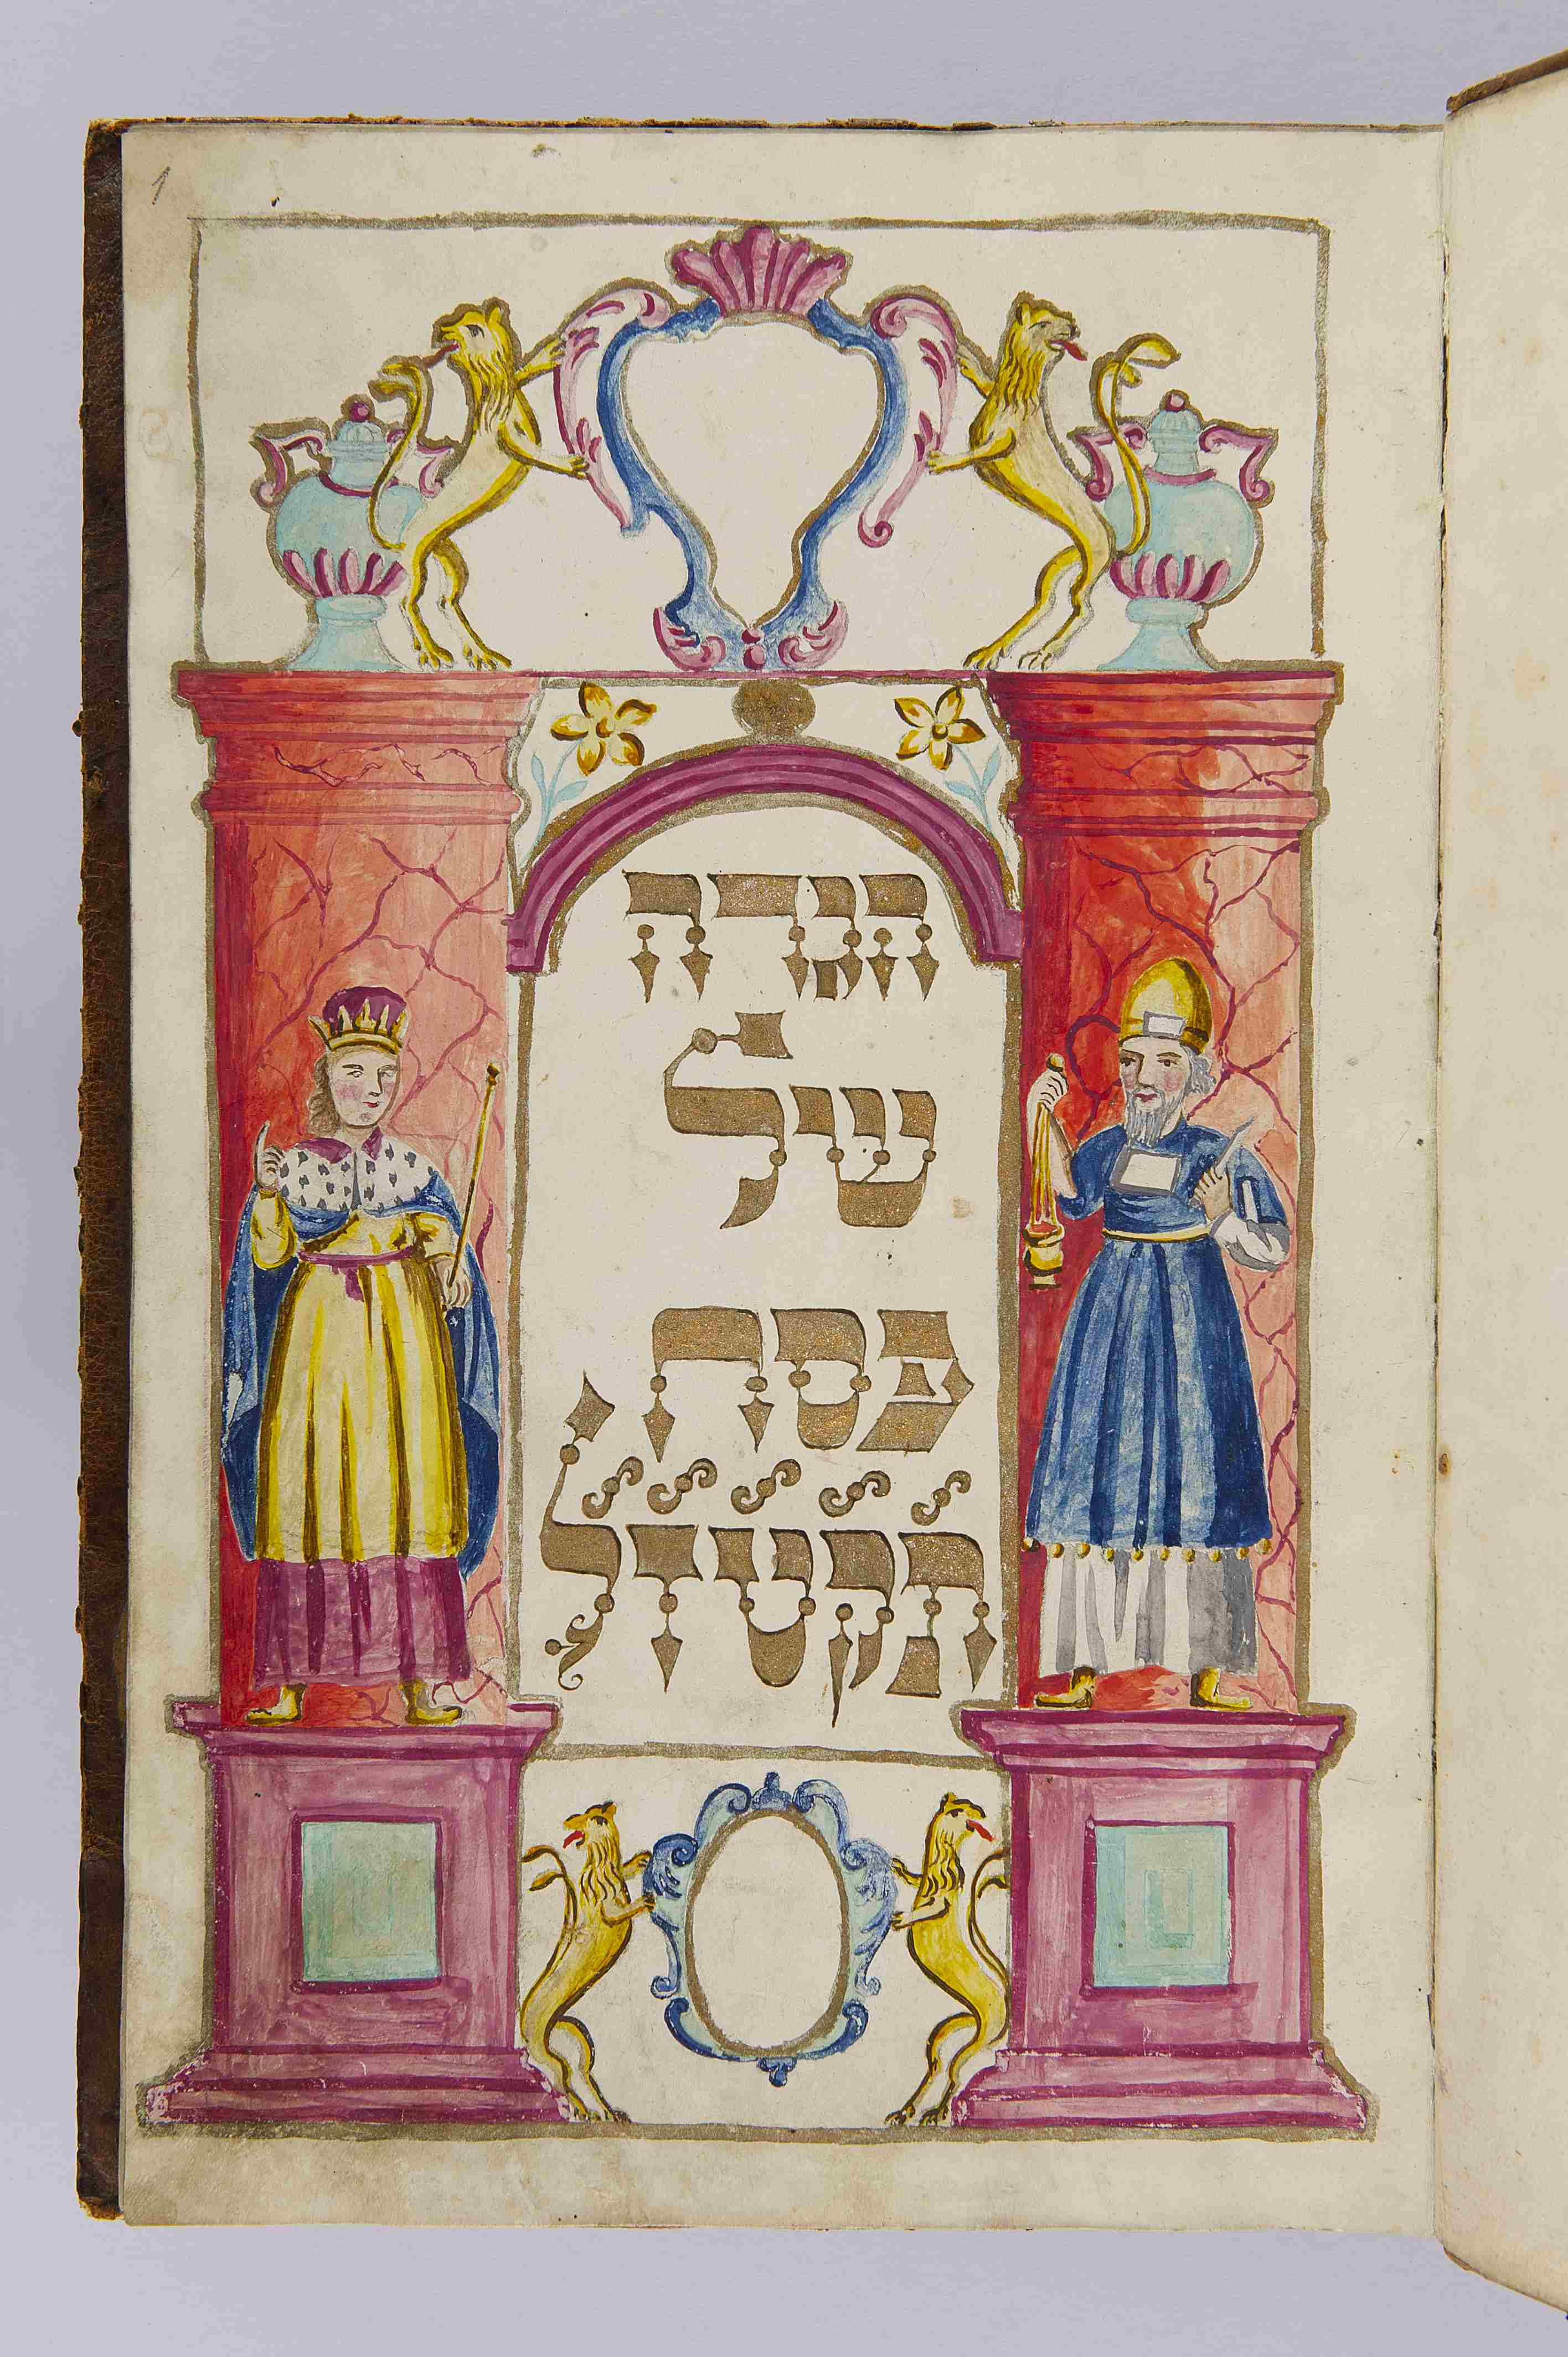 1
הגדה
של
פסח
תקטזל